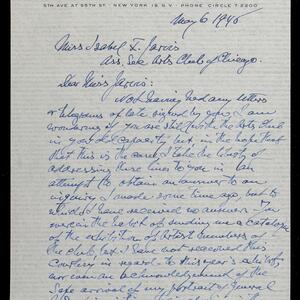 5TH AVE AT 55TH ST · NEW YORK 19 N.Y · PHONE CIRCLE 7-2200
May 6 1945
Miss Isabel F. Jarvis
Ass. Sec Arts Club of Chicago.
Dear Miss Jarvis:
Not having had any letters
or telegrams of late signed by you, I am
wondering if you are still with the Arts Club
in your old capacity but in the hope that
that this is the case I take the liberty of
addressing these lines to you in an
attempt to obtain an answer to an
inquiry I made some time ago, but to
which I have received no answer. You
were in the habit of sending me a catalog
of the exhibition of Artist Members of
the club, but I have not received this
courtesy in regard to this year's exhibit,
nor even an acknowledgement of the
safe arrival of my portrait of General